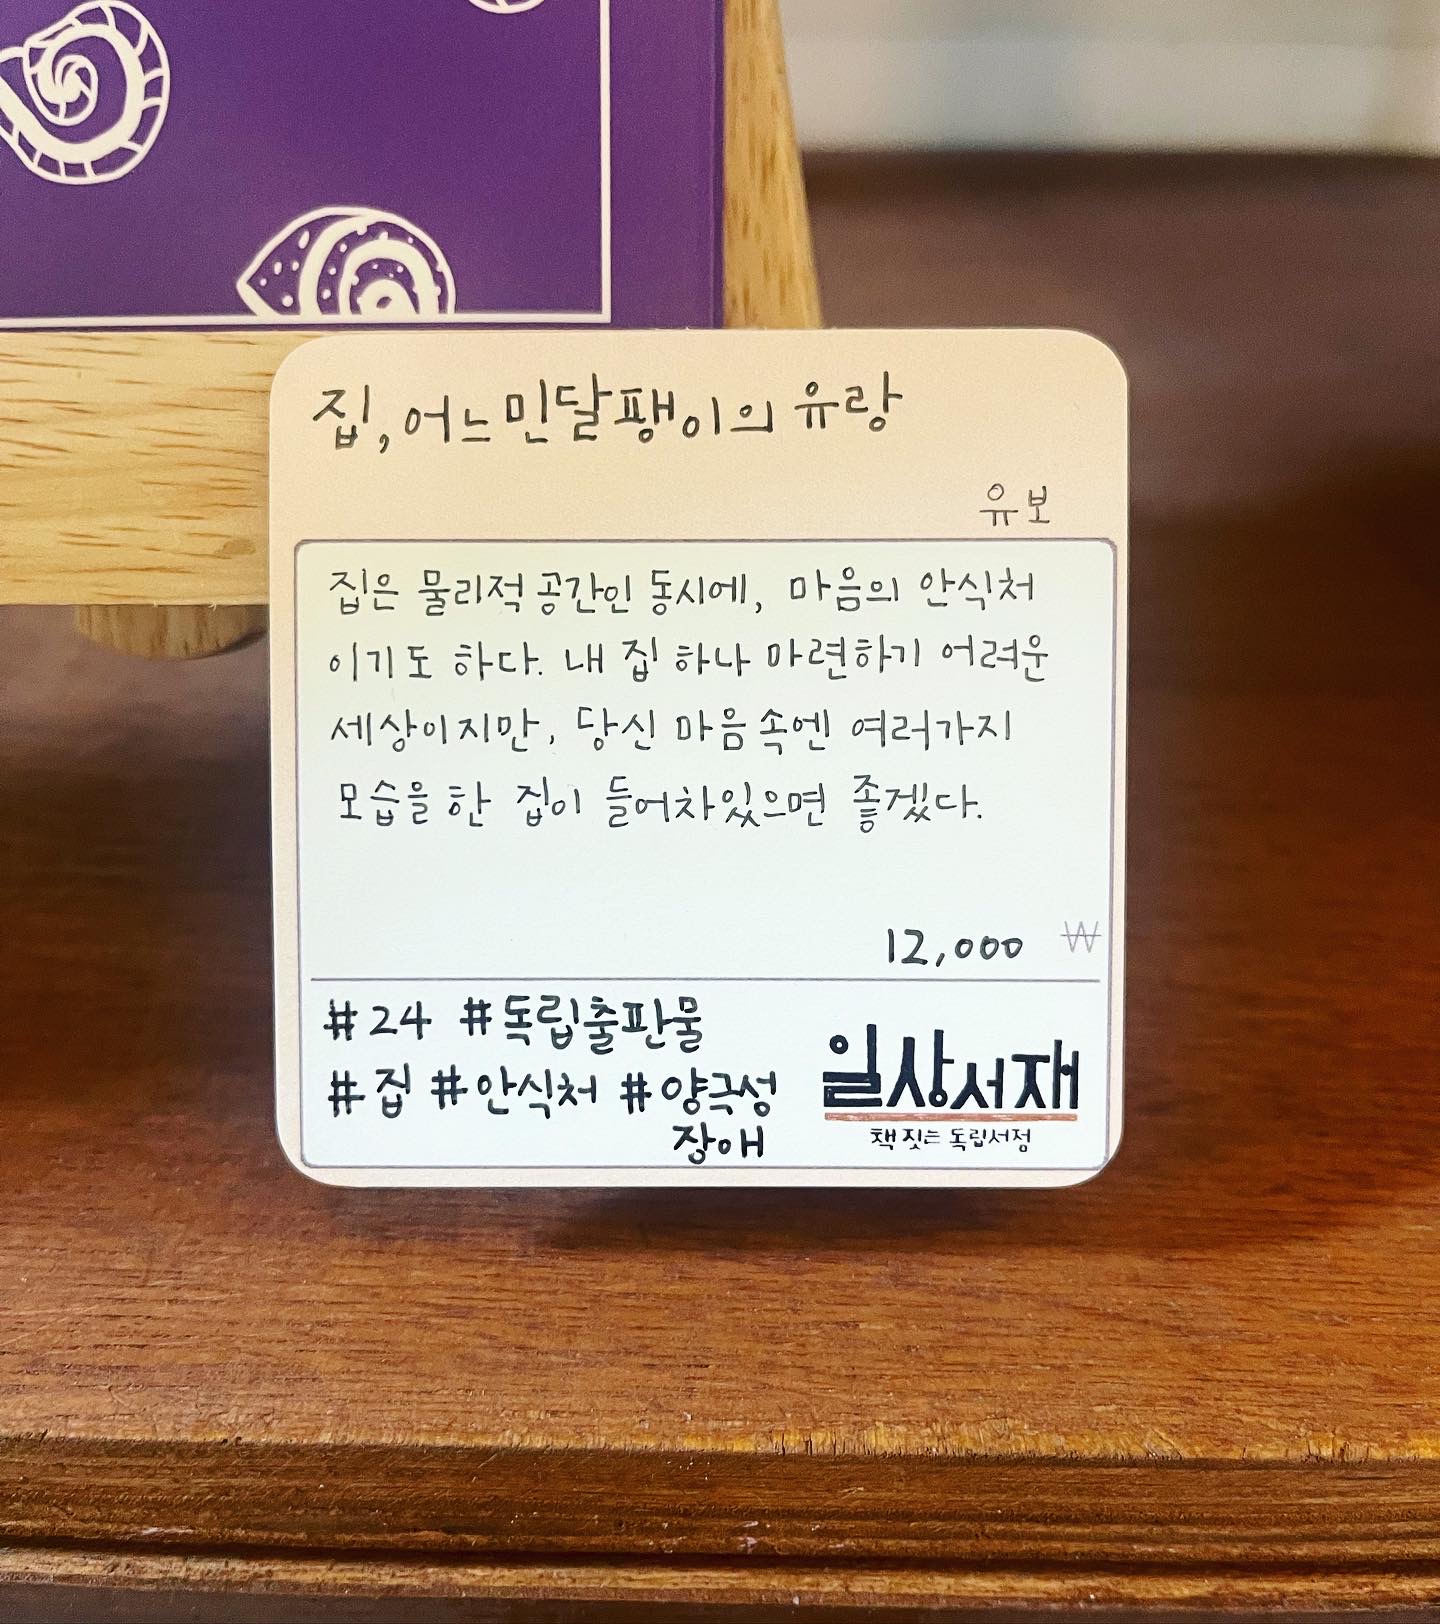 집, 어느 민달팽이의 유랑
유보
집은 물리적 공간인 동시에, 마음의 안식처
이기도 하다. 내 집 하나 마련하기 어려운
세상이지만, 당신 마음 속엔 여러가지
모습을 한 집이 들어차있으면 좋겠다.
12,000 ₩
#24 #독립출판물
#집 #안식처 #양극성
장애
일상서재
책 짓는 독립서점